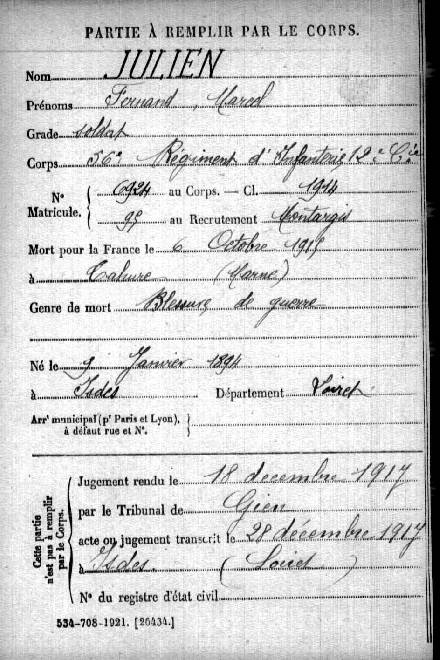 PARTIE À REMPLIR PAR LE CORPS.
Nom JULIEN
Prénoms Fernand, Marcel
Grade soldat
Corps 56e Régiment d'Infanterie 12e Cie
N° Matricule. { 6924 au Corps. — Cl. 1914
95 au Recrutement Montargis
Mort pour la France le 6 Octobre 1915
à Tahure (Marne)
Genre de mort Blessures de guerre
Né le 9 Janvier 1894
à Isdes Département Loiret
Arrt municipal (pr Paris et Lyon), à défaut rue et N°. }
Cette partie n'est pas à remplir par le Corps.
Jugement rendu le 18 décembre 1917
par le Tribunal de Gien
acte ou jugement transcrit le 28 décembre 1917
à Isdes (Loiret)
N° du registre d'état civil
534-708-1921. [26434.]